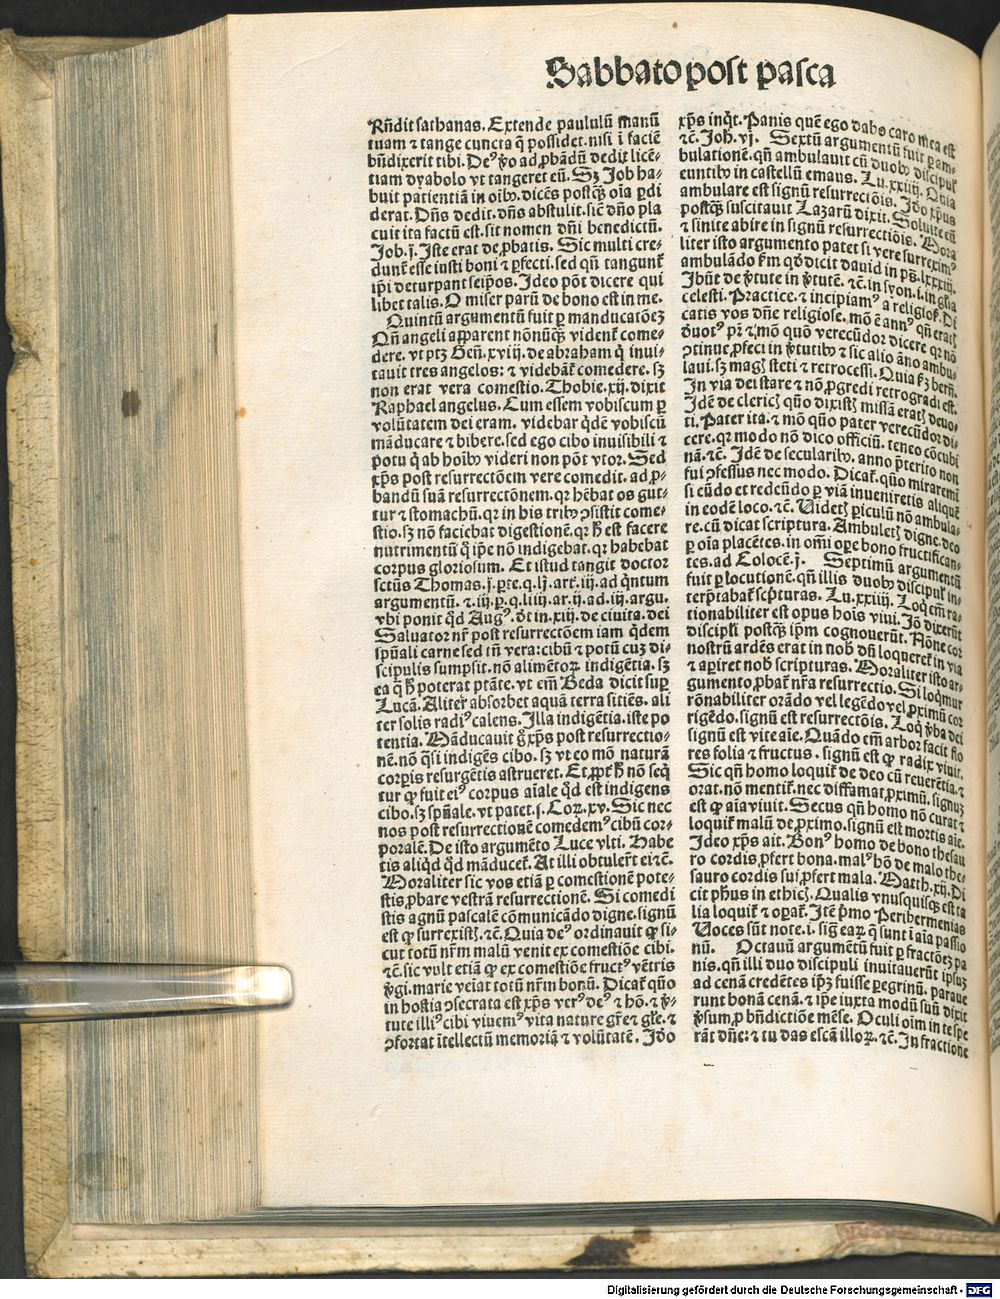 Sabbato post pasca
Rñdit sathanas. Extende paululũ manũ
tuam ⁊ tange cuncta q̃ possidet. nisi ĩ faciẽ
bñdixerit tibi. De⁹ ꝟo ad ꝓbãdũ dedit licẽ⸗
tiam dyabolo vt tangeret eũ. Sꝫ Job ha⸗
buit patientiã in oĩbꝰ. dicẽs postꝙ̃ oĩa ꝑdi
derat. Dñs dedit. dñs abstulit. sic̃ dño pla
cuit ita factũ est. sit nomen dñi benedictũ.
Job. j. Iste erat de ꝓbatis. Sic multi cre⸗
dunt̃ esse iusti boni ⁊ ꝑfecti. sed qñ tangunt̃
ip̃i deturpant seip̃os. Ideo põt dicere qui
libet talis. O miser parũ de bono est in me.
Quintũ argumentũ fuit ꝑ manducatõeꝫ
Qñ angeli apparent nõnũꝙ̃ vident̃ come⸗
dere. vt ptꝫ Geñ. xviij. de abraham q̃ inui⸗
tauit tres angelos: ⁊ videbãt̃ comedere. sꝫ
non erat vera comestio. Thobie. xij. dixit
Raphael angelus. Cum essem vobiscum ꝑ
volũtatem dei eram. videbar q̃dẽ vobiscũ
mãducare ⁊ bibere. sed ego cibo inuisibili ⁊
potu q̃ ab hoĩbꝰ videri non põt vtor. Sed
xp̃s post resurrectõem vere comedit. ad ꝓ⸗
bandũ suã resurrectõnem. qꝛ hẽbat os gut⸗
tur ⁊ stomachũ. qꝛ in his tribꝰ ꝯsistit come⸗
stio. sꝫ nõ faciebat digestionẽ. qꝛ h̃ est facere
nutrimentũ q̃ ip̃e nõ indigebat. qꝛ habebat
corpus gloriosum. Et istud tangit doctor
sctũs Thomas. j. ꝑte. q. lj. art̃. iij. ad q̃ntum
argumentũ. ⁊. iij. ꝑ. q. liiij. ar. ij. ad. iij. argu.
vbi ponit q̃d Aug⁹. d̃t in. xiij. de ciuita. dei
Saluator nr̃ post resurrectõem iam q̃dem
spũali carne sed tñ vera: cibũ ⁊ potũ cuꝫ di⸗
scipulis sumpsit. nõ alimẽtoꝝ indigẽtia. sꝫ
ea q̃ h̃ poterat ptãte. vt em̃ Beda dicit suꝑ
Lucã. Aliter absorbet aquã terra sitiẽs. ali
ter solis radi⁹ calens. Illa indigẽtia. iste po
tentia. Mãducauit g̃ xp̃s post resurrectio⸗
nẽ. nõ q̃si indigẽs cibo. sꝫ vt eo mõ naturã
corꝑis resurgẽtis astrueret. Et ꝓpt̃ h̃ nõ seq̃
tur ꝙ fuit ei⁹ corpus aĩale q̃d est indigens
cibo. sꝫ spũale. vt patet. j. Coꝝ. xv. Sic nec
nos post resurrectionẽ comedem⁹ cibũ cor⸗
poralẽ. De isto argumẽto Luce vlti. Habe
tis aliq̃d q̃d mãducet̃. At illi obtulert̃ ei ⁊c̃.
Moraliter sic vos etiã ꝑ comestionẽ pote⸗
stis ꝓbare vestrã resurrectionẽ. Si comedi
stis agnũ pascalẽ cõmunicãdo digne. signũ
est ꝙ surrexistꝭ. ⁊c̃. Quia de⁹ ordinauit ꝙ si⸗
cut totũ nr̃m malũ venit ex comestiõe cibi.
⁊c̃. sic vult etiã ꝙ ex comestiõe fruct⁹ vẽtris
ꝟgi. marie veiat totũ nr̃m bonũ. Dicat̃ quõ
in hostia ꝯsecrata est xp̃s ver⁹ de⁹ ⁊ hõ. ⁊ ꝟ⸗
tute illi⁹ cibi viuem⁹ vita nature gr̃e ⁊ gl̃e. ⁊
ꝯfortat ĩtellectũ memoriã ⁊ volũtatẽ. Idõo
xp̃s inq̃t. Panis quẽ ego dabo caro mea est
⁊c̃. Joh̃. vj. Sextũ argumentũ fuit ꝑ am⸗
bulationẽ. qñ ambulauit cũ duobꝰ discipul̃
euntibꝰ in castellũ emaus. Lu. xxiiij. Quia
ambulare est signũ resurrectiõis. Idõ xp̃us
postꝙ̃ suscitauit Lazarũ dixit. Soluite eũ
⁊ sinite abire in signũ resurrectiõis. Mora
liter isto argumento patet si vere surrexim⁹
ambulãdo s̃m qd̃ dicit dauid in ps̃. lxxxiij.
Ibũt de ꝟtute in ꝟtutẽ. ⁊c̃. in syon. i. in gl̃ia
celesti. Practice. ⁊ incipiam⁹ a religiosꝭ. Di
catis vos dñe religiose. mõ ẽ ann⁹ qñ eratꝭ
deuot⁹ pr̃ ⁊ mõ quõ verecũdor dicere qꝛ nõ
ꝯtinue ꝓfeci in ꝟtutibꝰ ⁊ sic alio ãno ambu⸗
laui. sꝫ magꝭ steti ⁊ retrocessi. Quia s̃ꝫ berñ.
In via dei stare ⁊ nõ ꝓgredi retrogradi est.
Idẽ de clericꝭ quõ dixistꝭ missã eratꝭ deuo⸗
ti. Pater ita. ⁊ mõ quõ pater verecũdor di⸗
cere. qꝛ modo nõ dico officiũ. teneo cõcubi
nã. ⁊c̃. Idẽ de secularibꝰ. anno p̃terito non
fui ꝯfessus nec modo. Dicat̃. quõ miraremĩ
si eũdo et redeũdo ꝑ viã inueniretis aliquẽ
in eodẽ loco. ⁊c̃. Videtꝭ ꝑiculũ nõ ambula⸗
re. cũ dicat scriptura. Ambuletꝭ digne. deo
ꝑ oĩa placẽtes. in omĩ oꝑe bono fructifican⸗
tes. ad Colocẽ. j. Septimũ argumentũ
fuit ꝑ locutionẽ. qñ illis duobꝰ discipul̃ in⸗
terp̃tabat̃ sc̃pturas. Lu. xxiiij. Loq̃ em̃ ra⸗
tionabiliter est opus hoĩs viui. Iõ dixerũt
discipl̃i postꝙ̃ ip̃m cognouerũt. Nõne cor
nostrũ ardẽs erat in nob̃ dũ loqueret̃ in via
⁊ aꝑiret nob̃ scripturas. Moraliter isto ar⸗
gumento ꝓbat̃ nr̃a resurrectio. Si loq̃mur
rõnabiliter orãdo vel legẽdo vel ꝓximũ cor
rigẽdo. signũ est resurrectõis. Loq̃ ꝟba dei
signũ est vite aĩe. Quãdo em̃ arbor facit flo
res folia ⁊ fructus. signũ est ꝙ radix viuit.
Sic qñ homo loquit̃ de deo cũ reuerẽtia. ⁊
orat. nõ mentit̃. nec diffamat ꝓximũ. signuꝫ
est ꝙ aĩa viuit. Secus qñ homo nõ curat ⁊
loquit̃ malũ de ꝓximo. signũ est mortis aĩe.
Ideo xp̃s ait. Bon⁹ homo de bono thesau
ro cordis ꝓfert bona. mal⁹ hõ de malo the⸗
sauro cordis sui ꝓfert mala. Matth. xij. Di
cit ph̃us in ethicꝭ. Qualis vnusquisqꝫ est ta
lia loquit̃ ⁊ oꝑat̃. Itẽ p̃mo Perihermenias
Uoces sũt note. i. sig̃ eaꝝ q̃ sunt ĩ aĩa passio
nũ. Octauũ argumẽtũ fuit ꝑ fractõeꝫ pa
nis. qñ illi duo discipuli inuitauerũt ip̃suꝫ
ad cenã credẽtes ip̃ꝫ fuisse ꝑegrinũ. paraue
runt bonã cenã. ⁊ ip̃e iuxta modũ suũ dixit
ꝟsum ꝓ bñdictiõe mẽse. Oculi oĩm in te spe
rãt dñe: ⁊ tu das escã illoꝝ. ⁊c̃. In fractione
Digitalisierung gefördert durch die Deutsche Forschungsgemeinschaft - DFG